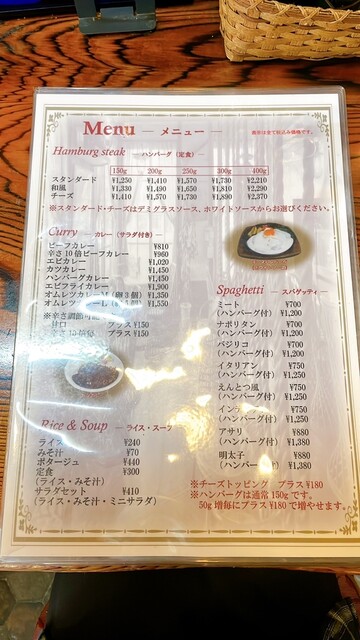 Menu — メニュー —
表示は全て税込み価格です。
Hamburg steak — ハンバーグ (定食) —
150g 200g 250g 300g 400g
スタンダード ¥1,250 ¥1,410 ¥1,570 ¥1,730 ¥2,210
和風 ¥1,330 ¥1,490 ¥1,650 ¥1,810 ¥2,290
チーズ ¥1,410 ¥1,570 ¥1,730 ¥1,890 ¥2,370
※スタンダード・チーズはデミグラスソース、ホワイトソースからお選びください。
Curry — カレー (サラダ付き) —
ビーフカレー ¥810
辛さ10倍ビーフカレー ¥960
エビカレー ¥1,020
カツカレー ¥1,450
ハンバーグカレー ¥1,450
エビフライカレー ¥1,900
オムレツカレー (卵3個) ¥1,350
オムレツカレーL ¥1,550
※辛さ調節可能
甘口 プラス¥150
辛さ10倍 プラス¥150
Rice & Soup — ライス・スープ
ライス ¥240
みそ汁 ¥70
ポタージュ ¥440
定食 ¥300
(ライス・みそ汁)
サラダセット ¥410
(ライス・みそ汁・ミニサラダ)
Spaghetti — スパゲッティ —
ミート ¥700
(ハンバーグ付) ¥1,200
ナポリタン ¥700
(ハンバーグ付) ¥1,200
バジリコ ¥700
(ハンバーグ付) ¥1,200
イタリアン ¥750
(ハンバーグ付) ¥1,250
えんとつ風 ¥750
(ハンバーグ付) ¥1,250
イン ¥750
(ハンバーグ付) ¥1,250
アサリ ¥880
(ハンバーグ付) ¥1,380
明太子 ¥880
(ハンバーグ付) ¥1,380
※チーズトッピング プラス¥180
※ハンバーグは通常150gです。
50g増毎にプラス¥180で増やせます。